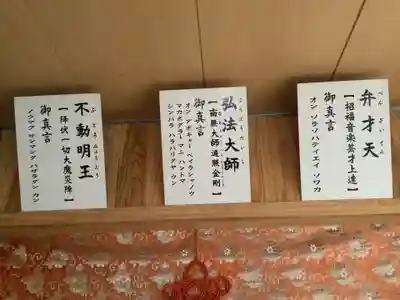 弁才天
べんざいてん
【招福音楽芸才上達】
御真言
オン ソラソバテイエイ ソワカ
弘法大師
こうぼうだいし
【南無大師遍照金剛】
御真言
オン アボキャー ベイラシャノウ
マカボダラー マニ ハントマ
シンバラ ハラバリタヤ ウン
不動明王
ふどうみょうおう
【降伏一切大魔災障】
御真言
ノウマク サンマンダ バザラダン カン